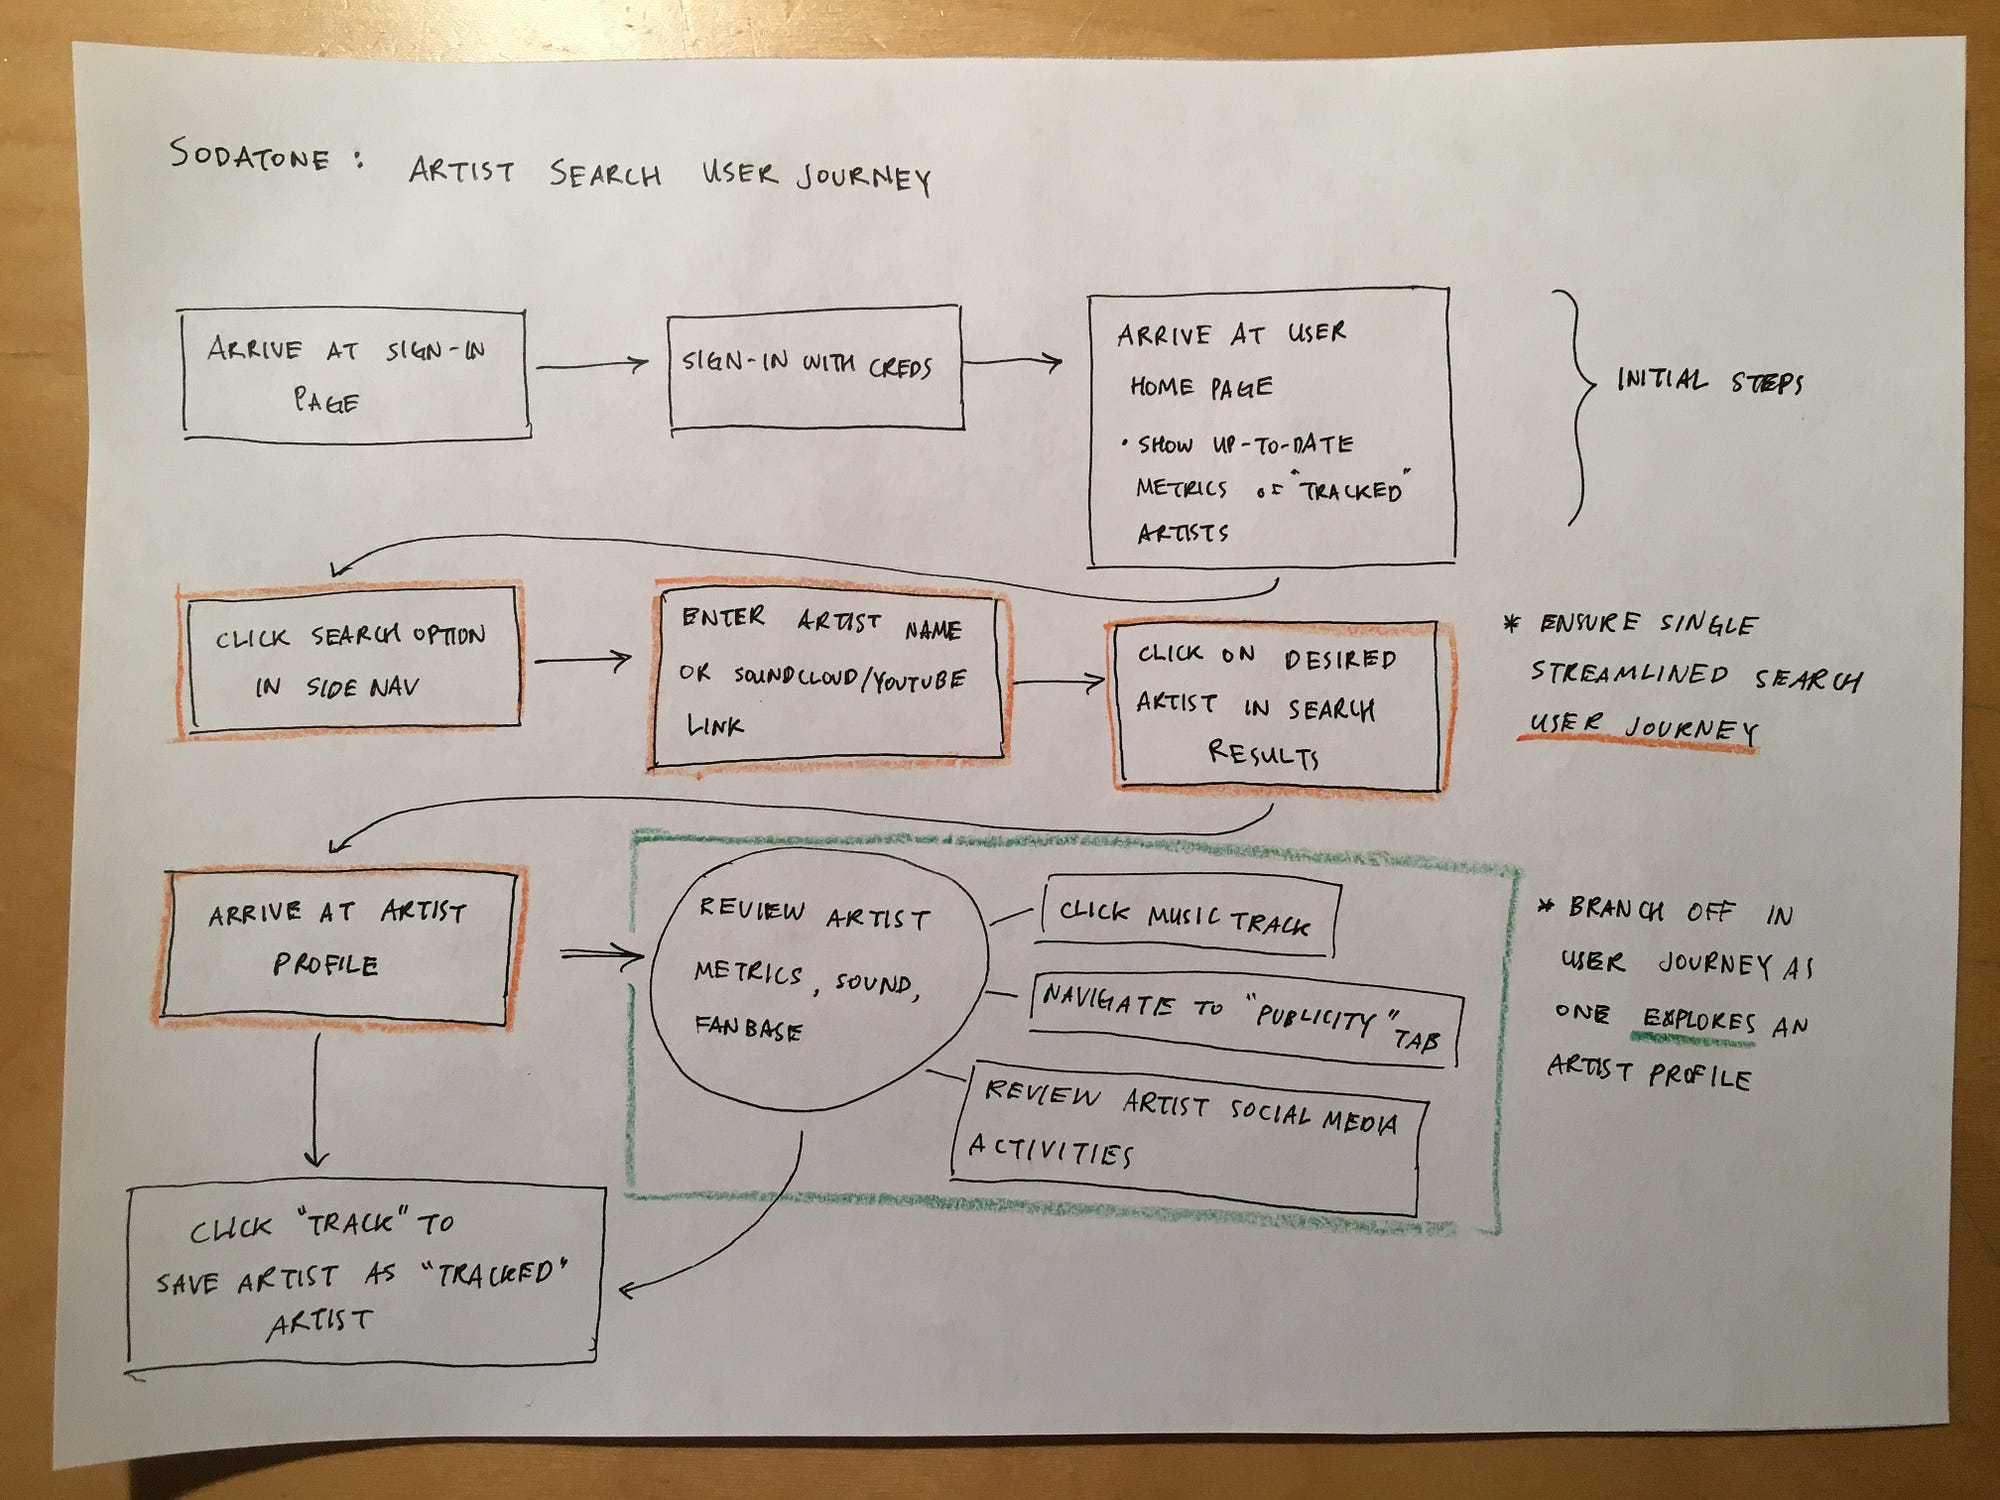 SODATONE : ARTIST SEARCH USER JOURNEY
ARRIVE AT SIGN-IN
PAGE
SIGN-IN WITH CREDS
ARRIVE AT USER
HOME PAGE
• SHOW UP-TO-DATE
METRICS OF "TRACKED"
ARTISTS
INITIAL STEPS
CLICK SEARCH OPTION
IN SIDE NAV
ENTER ARTIST NAME
OR SOUNDCLOUD/YOUTUBE
LINK
CLICK ON DESIRED
ARTIST IN SEARCH
RESULTS
* ENSURE SINGLE
STREAMLINED SEARCH
USER JOURNEY
ARRIVE AT ARTIST
PROFILE
REVIEW ARTIST
METRICS, SOUND,
FANBASE
CLICK MUSIC TRACK
NAVIGATE TO "PUBLICITY"
TAB
REVIEW ARTIST SOCIAL MEDIA
ACTIVITIES
* BRANCH OFF IN
USER JOURNEY AS
ONE EXPLORES AN
ARTIST PROFILE
CLICK "TRACK" TO
SAVE ARTIST AS "TRACKED"
ARTIST